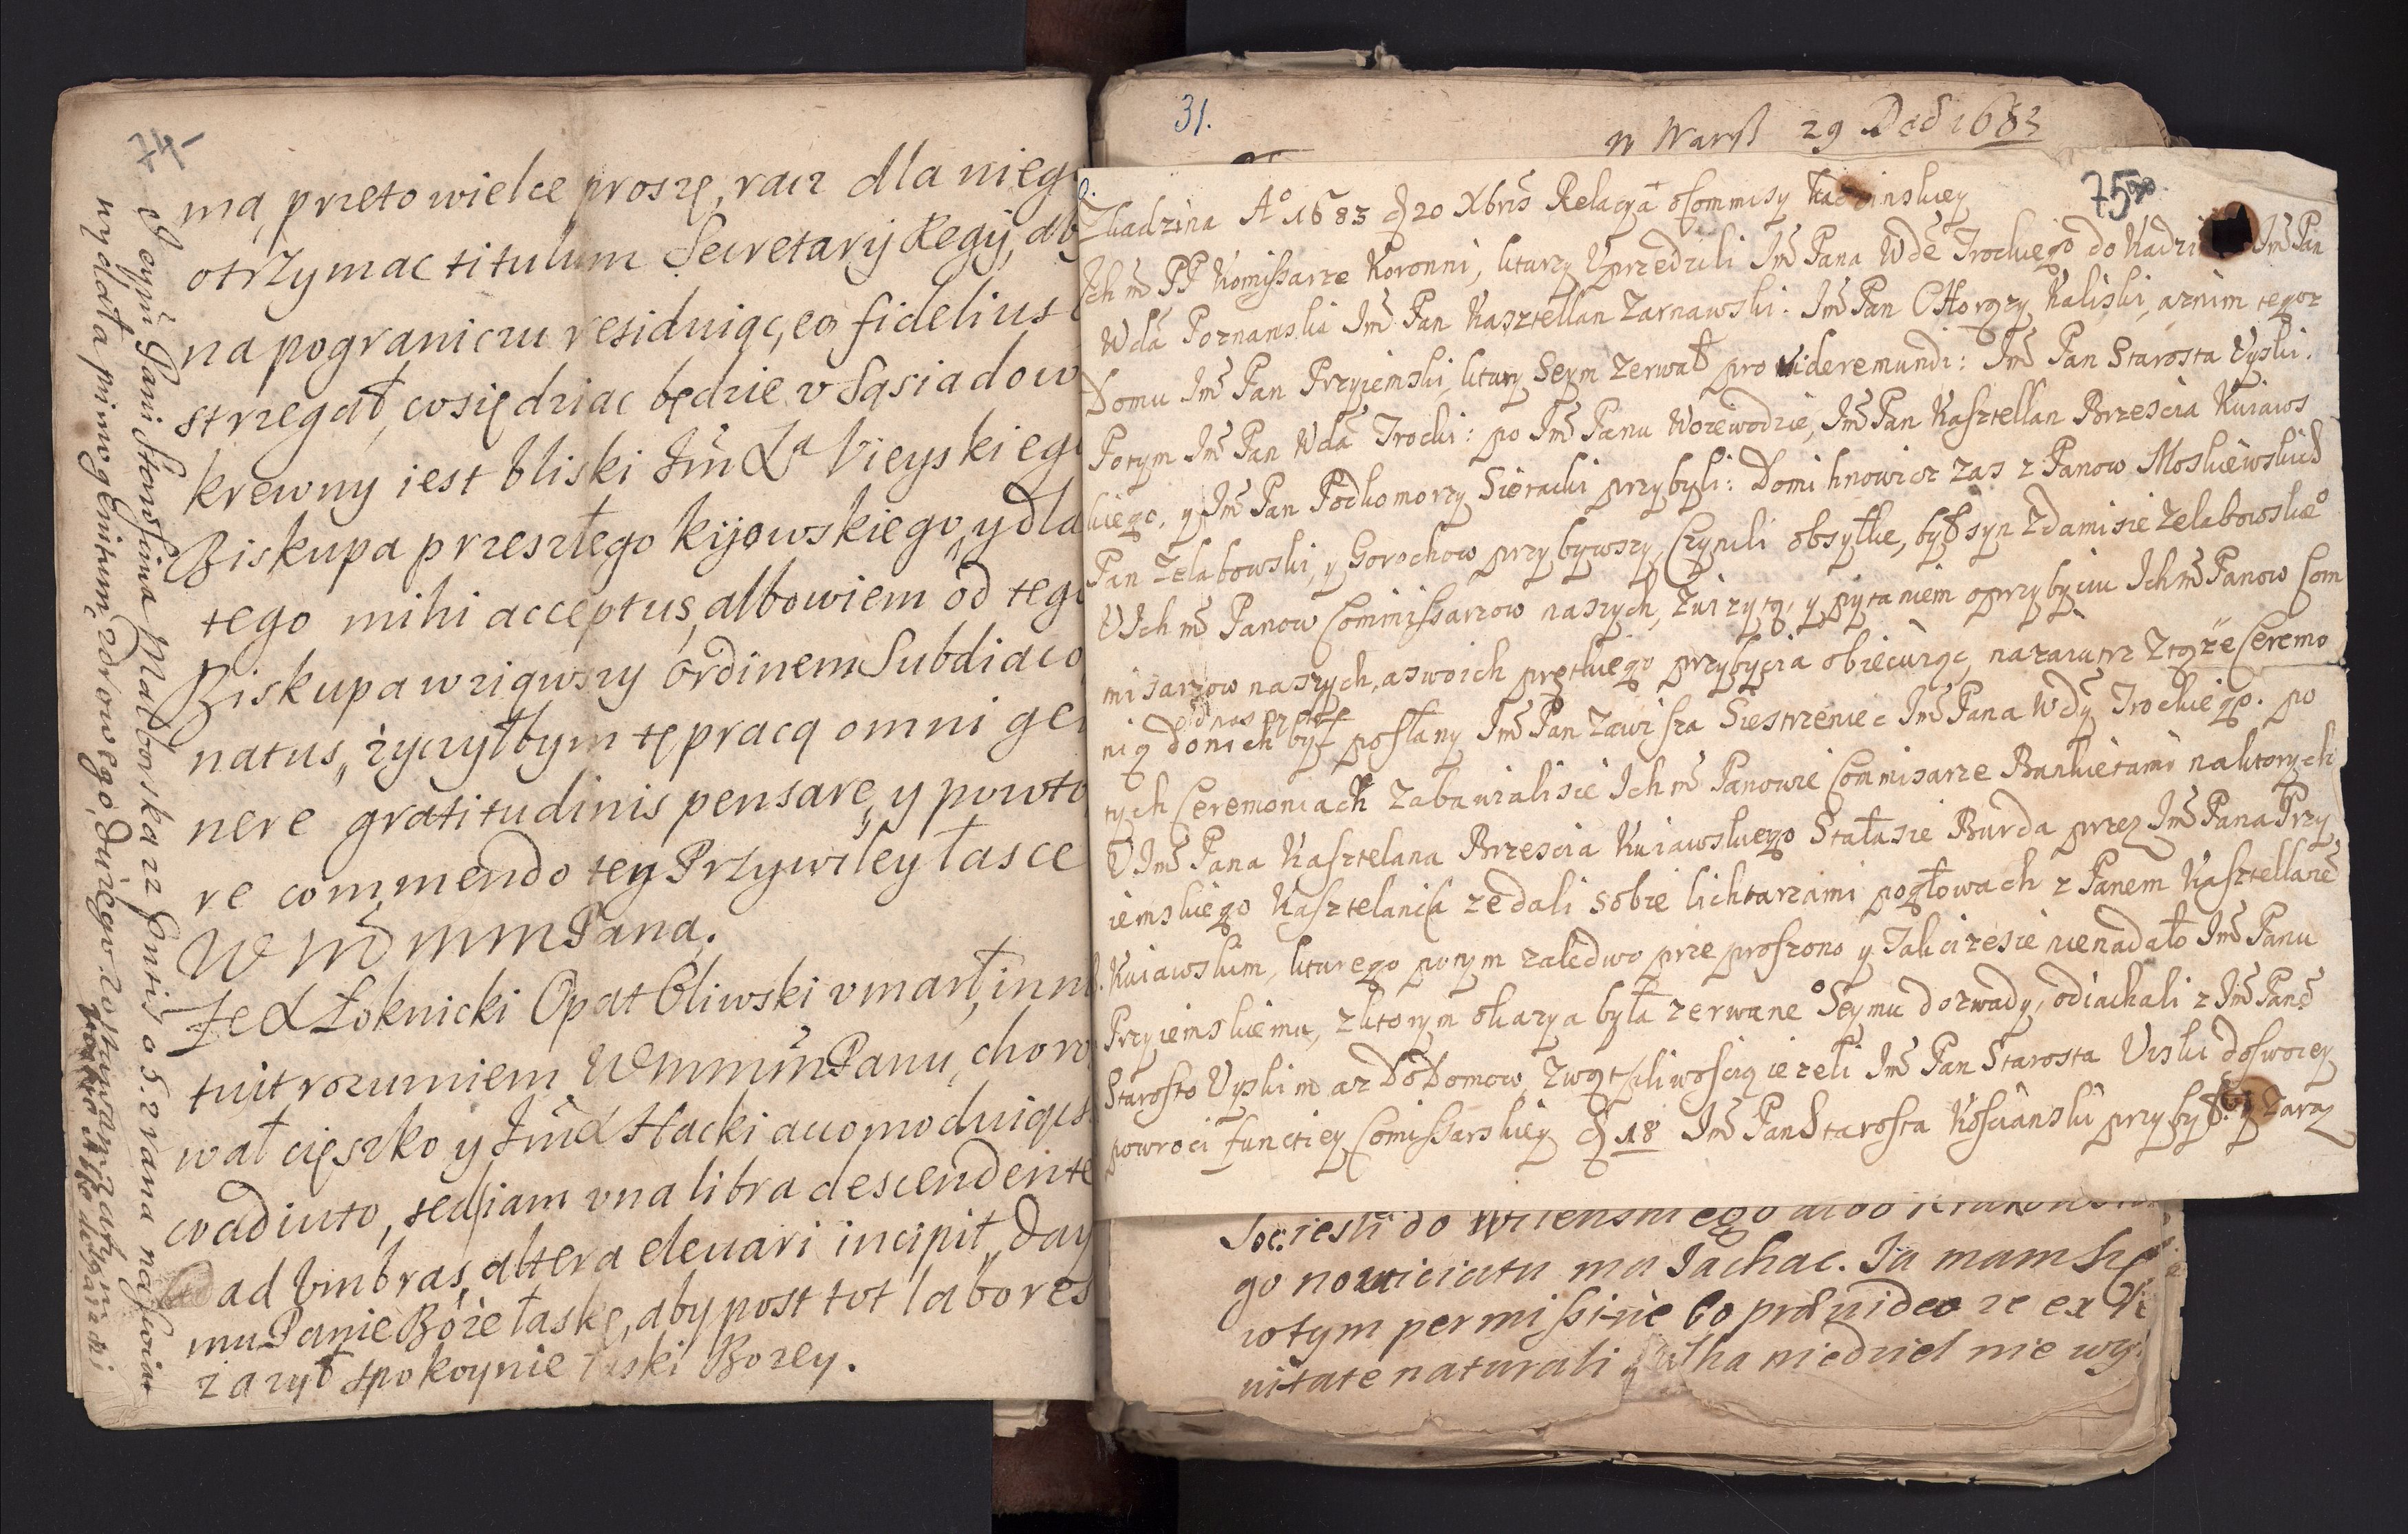 74
ma, przeto wielce proszę, racz dla nieg
otrzymac titulum Secretarij Regij, ab
na pograniczu residuiąc, eo fidelius
strzegał, co się dziac będzie v Sąsiadow
krewny iest bliski Jm Xa Vieyskieg
Biskupa przeszłego kijowskiego, y dla
tego mihi acceptus, albowiem od teg
Biskupa wziąwszy ordinem Subdiaco
natus, życzyłbym tę pracą omni ge
nere gratitudinis pensare, y powto
re commendo tey Przywiley łasce
WMMMPana.
Ze X Łoknicki Opat Oliwski vmarł, inno
tuit rozumiem WMMMPanu, choro
wał cięszko y Jm X Hacki accomoduiąc s
coadiuto, sed iam vna libra descendente
ad vmbras, altera eleuari incipit, Day
mu Panie Boże łaskę, aby post tot labores
zazył spokoynie łaski Bozey.
Jeymć Pani Stonskina Malborska 22 Hutis o 5 z rana
wydała primogenitum, zdrowego, duzego
31.
w Warsz 29 Dec 1683
75
Zkadzina Ao 1683 d 20 Xbris Relacya o Commisy Kadzinskiey
Ich mć PP Komissarze Koronni, kturzy Uprzedzili Jmć Pana Wdę Trockiego do Kadzi Jmć Pan
Wda Poznanski Jmć Pan Kasztellan Zarnawski. Jmć Pan CHorązy Kaliski, aznim tegoz
Domu Jmć Pan Przyiemski, ktury Seym zerwał pro videremundi: Jmć Pan Starosta Uyski.
Potym Jmć Pan Wda Trocki: po Jmć Panu Woiewodzie, Jmć Pan Kasztellan Brzescia Kuiaws
kiego, y Jmć Pan Podkomorzy Sieracki przybyli: Domihnowicz zas z Panow Moskiewskich
Pan Zelabowski, y Gorochow przybywszy, Czynili obsyłke, był syn Zdamisie Zelabowskio
U Ich mć Panow Commissarzow naszych, Zwizytą, y pytaniem oprzybyciu Ichmć Panow Com
misarzow naszych, aswoich prętkiego przybycia obiecuiąc, nazaiutrz Ztąże Ceremo
nią donich był posłany Jmć Pan Zawisza Siestrzeniec Jmć Pana Wdy Trockiego. po
tych Ceremoniach zabawialisie Ich mć Panowie Commisarze Bankietami naktorych
U Jmć Pana Kasztelana Brzescia Kuiawskiego Stałasie Burda przez Jmć Pana Przy
iemskiego Kasztelanica ze dali sobie lichtarzami pogłowach z Panem Kasztellane
Kuiawskim, kturego potym zaledwo przeproszono y Tak ci zesie nienadało Jmć Panu
Przyiemskiemu, zktorym okazya była zerwaneo Seymu dozwady, odiachali z Jmć Pane
Starosto Uyskim az DoDomow, Zwątpliwoscią iezeli Jmć Pan Starosta Uiski doswoiey
powroci functiey Comissarskiey d 18 Jmć Pan Starosta Kościanski przybył y Zaraz
Soc: iesli do Wilenskiego albo Krakowsk
go nowiciatu ma Iachac. Ia mam
wtym permissine bo praeuideo ze ex
uitate naturali kilka niedziel nie wy